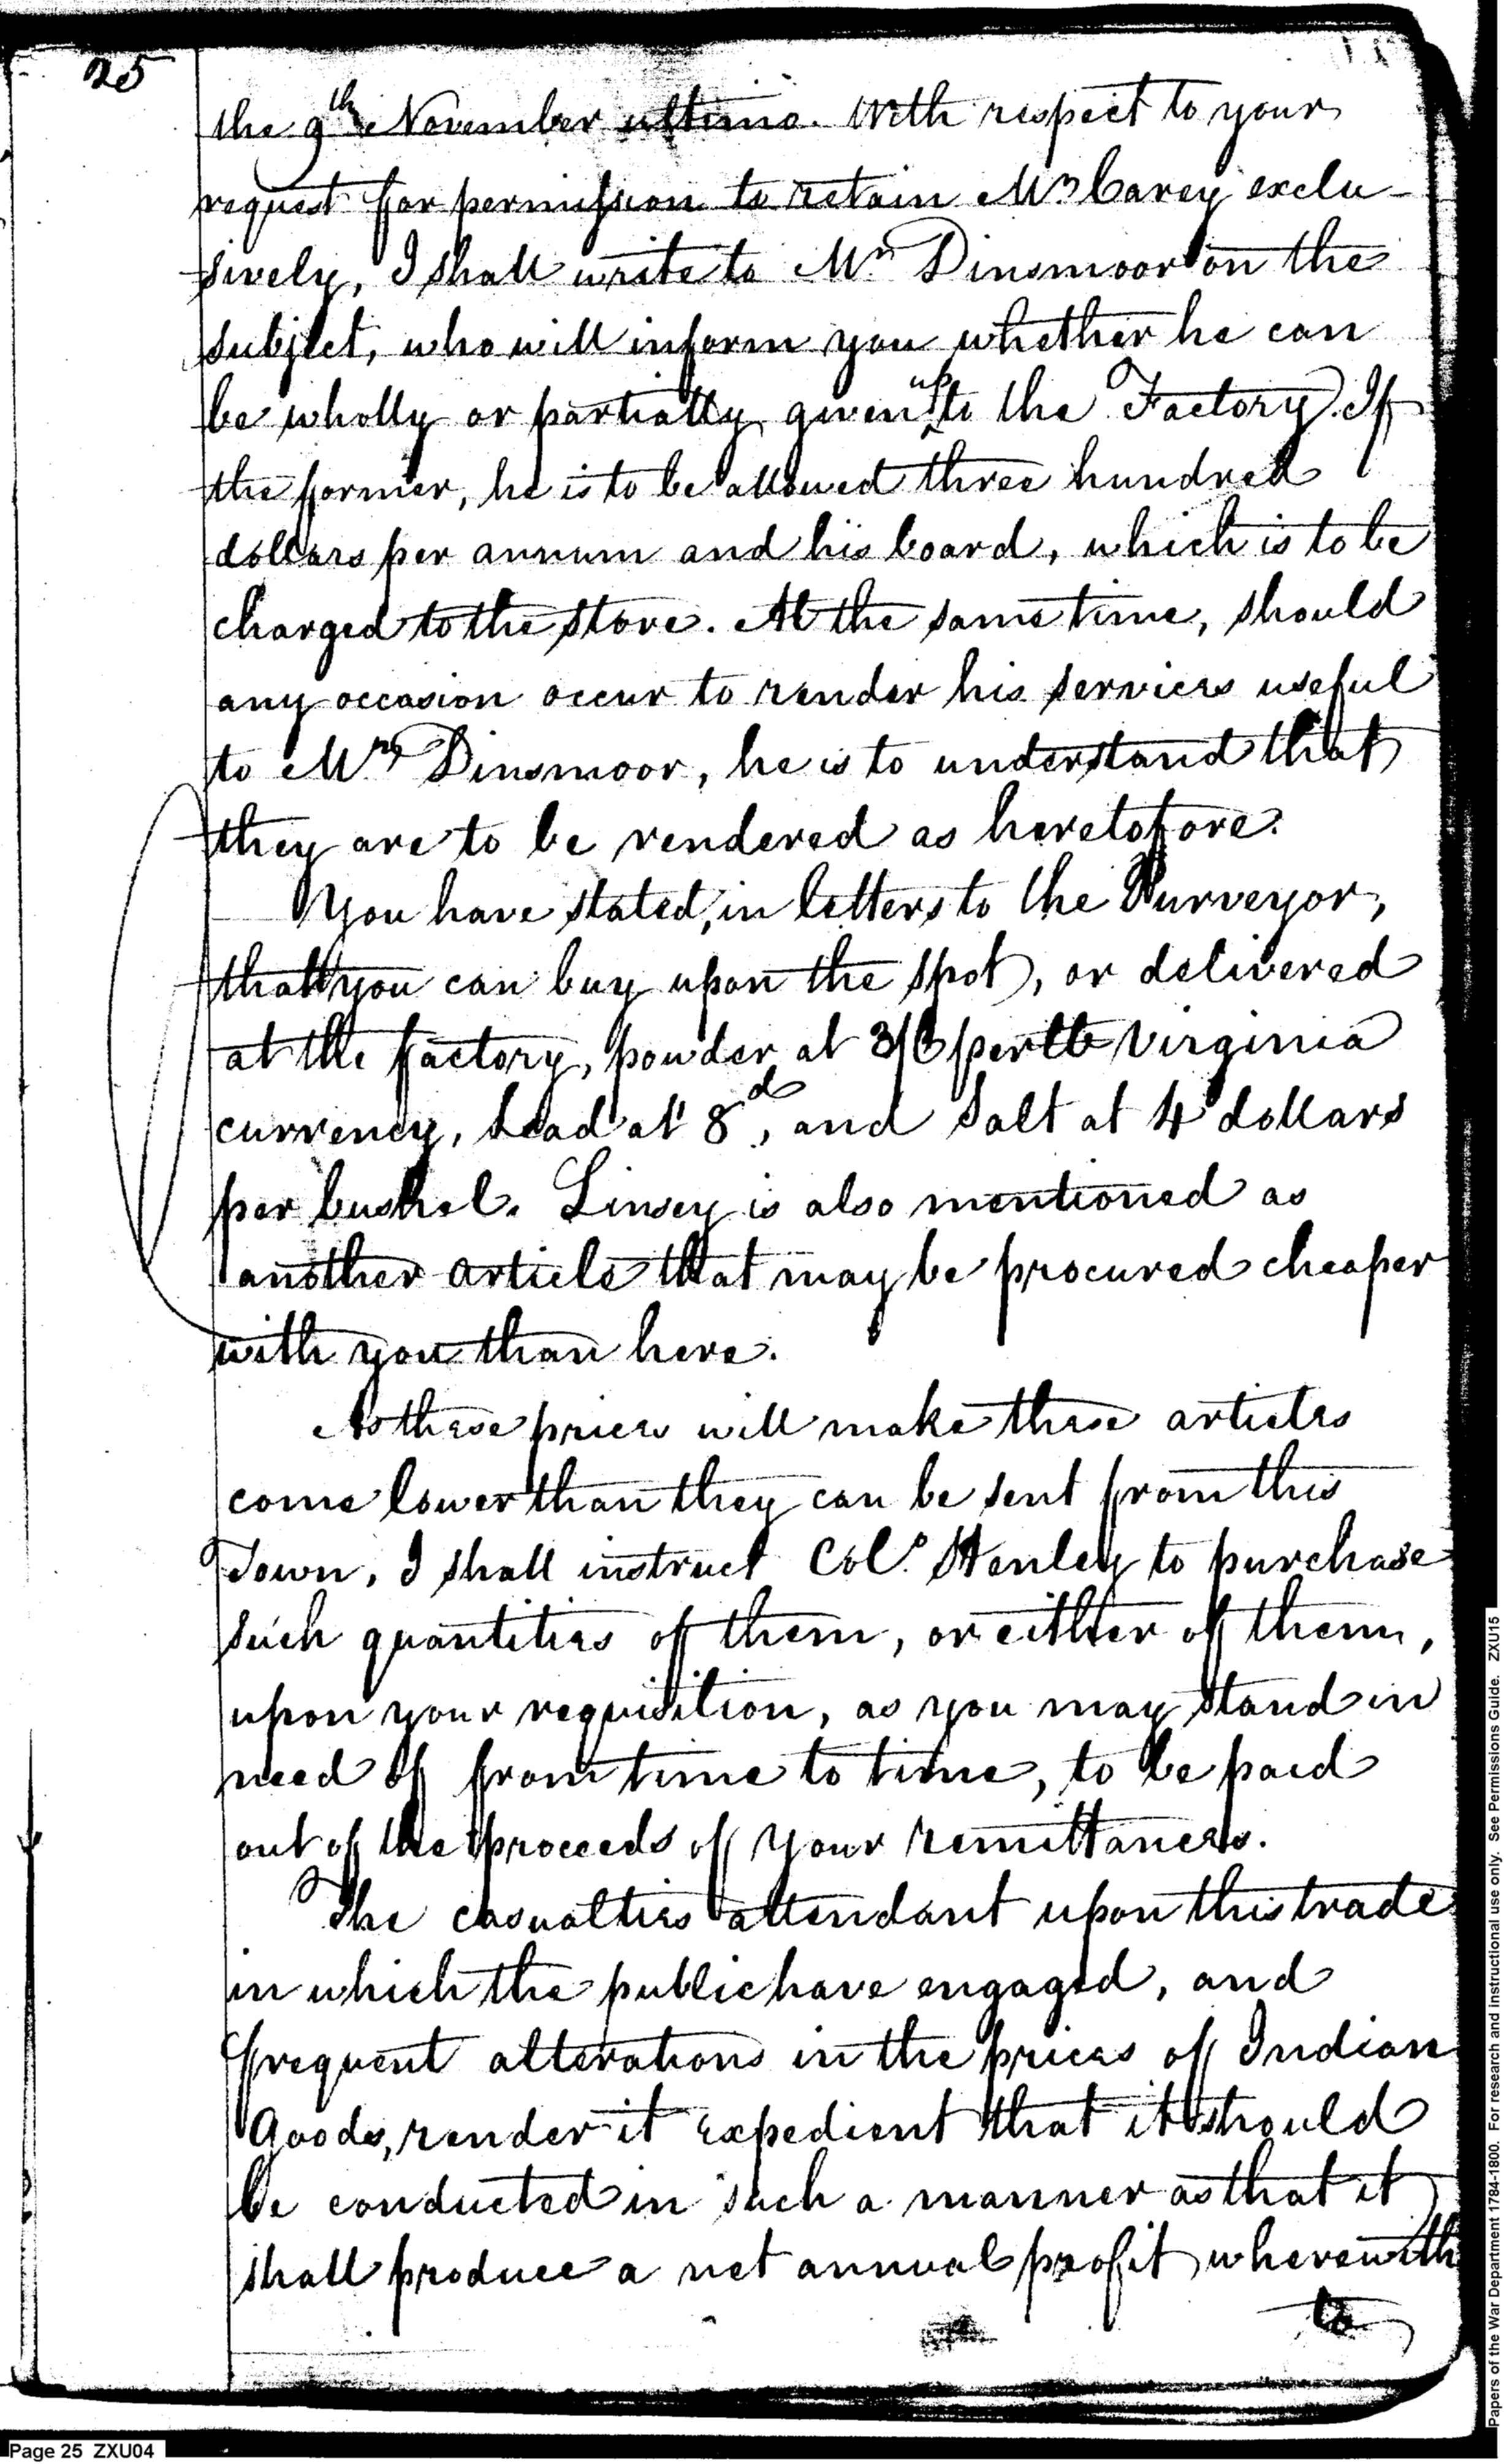 25
the 9th November ultimo. With respect to your
request for permission to retain Mr Carey exclu-
sively, I shall write to Mr Dinsmoor on the
subject, who will inform you whether he can
be wholly or partially given up to the Factory. If
the former, he is to be allowed three hundred
dollars per annum and his board, which is to be
charged to the store. At the same time, should
any occasion occur to render his services useful
to Mr Dinsmoor, he is to understand that
they are to be rendered as heretofore.
You have stated, in letters to the Purveyor,
that you can buy upon the spot, or delivered
at the factory, powder at 3/6 per lb Virginia
currency, Lead at 8d, and Salt at 4 dollars
per bushel. Linsey is also mentioned as
another article that may be procured cheaper
with you than here.
As these prices will make these articles
come lower than they can be sent from this
Town, I shall instruct Col. Henley to purchase
such quantities of them, or either of them,
upon your requisition, as you may stand in
need of from time to time, to be paid
out of the proceeds of your remittances.
The casualties attendant upon this trade
in which the public have engaged, and
frequent alterations in the prices of Indian
Goods, render it expedient that it should
be conducted in such a manner as that it
shall produce a net annual profit wherewith
to
Page 25 ZXU04
Papers of the War Department 1784-1800. For research and instructional use only. See Permissions Guide. ZXU15